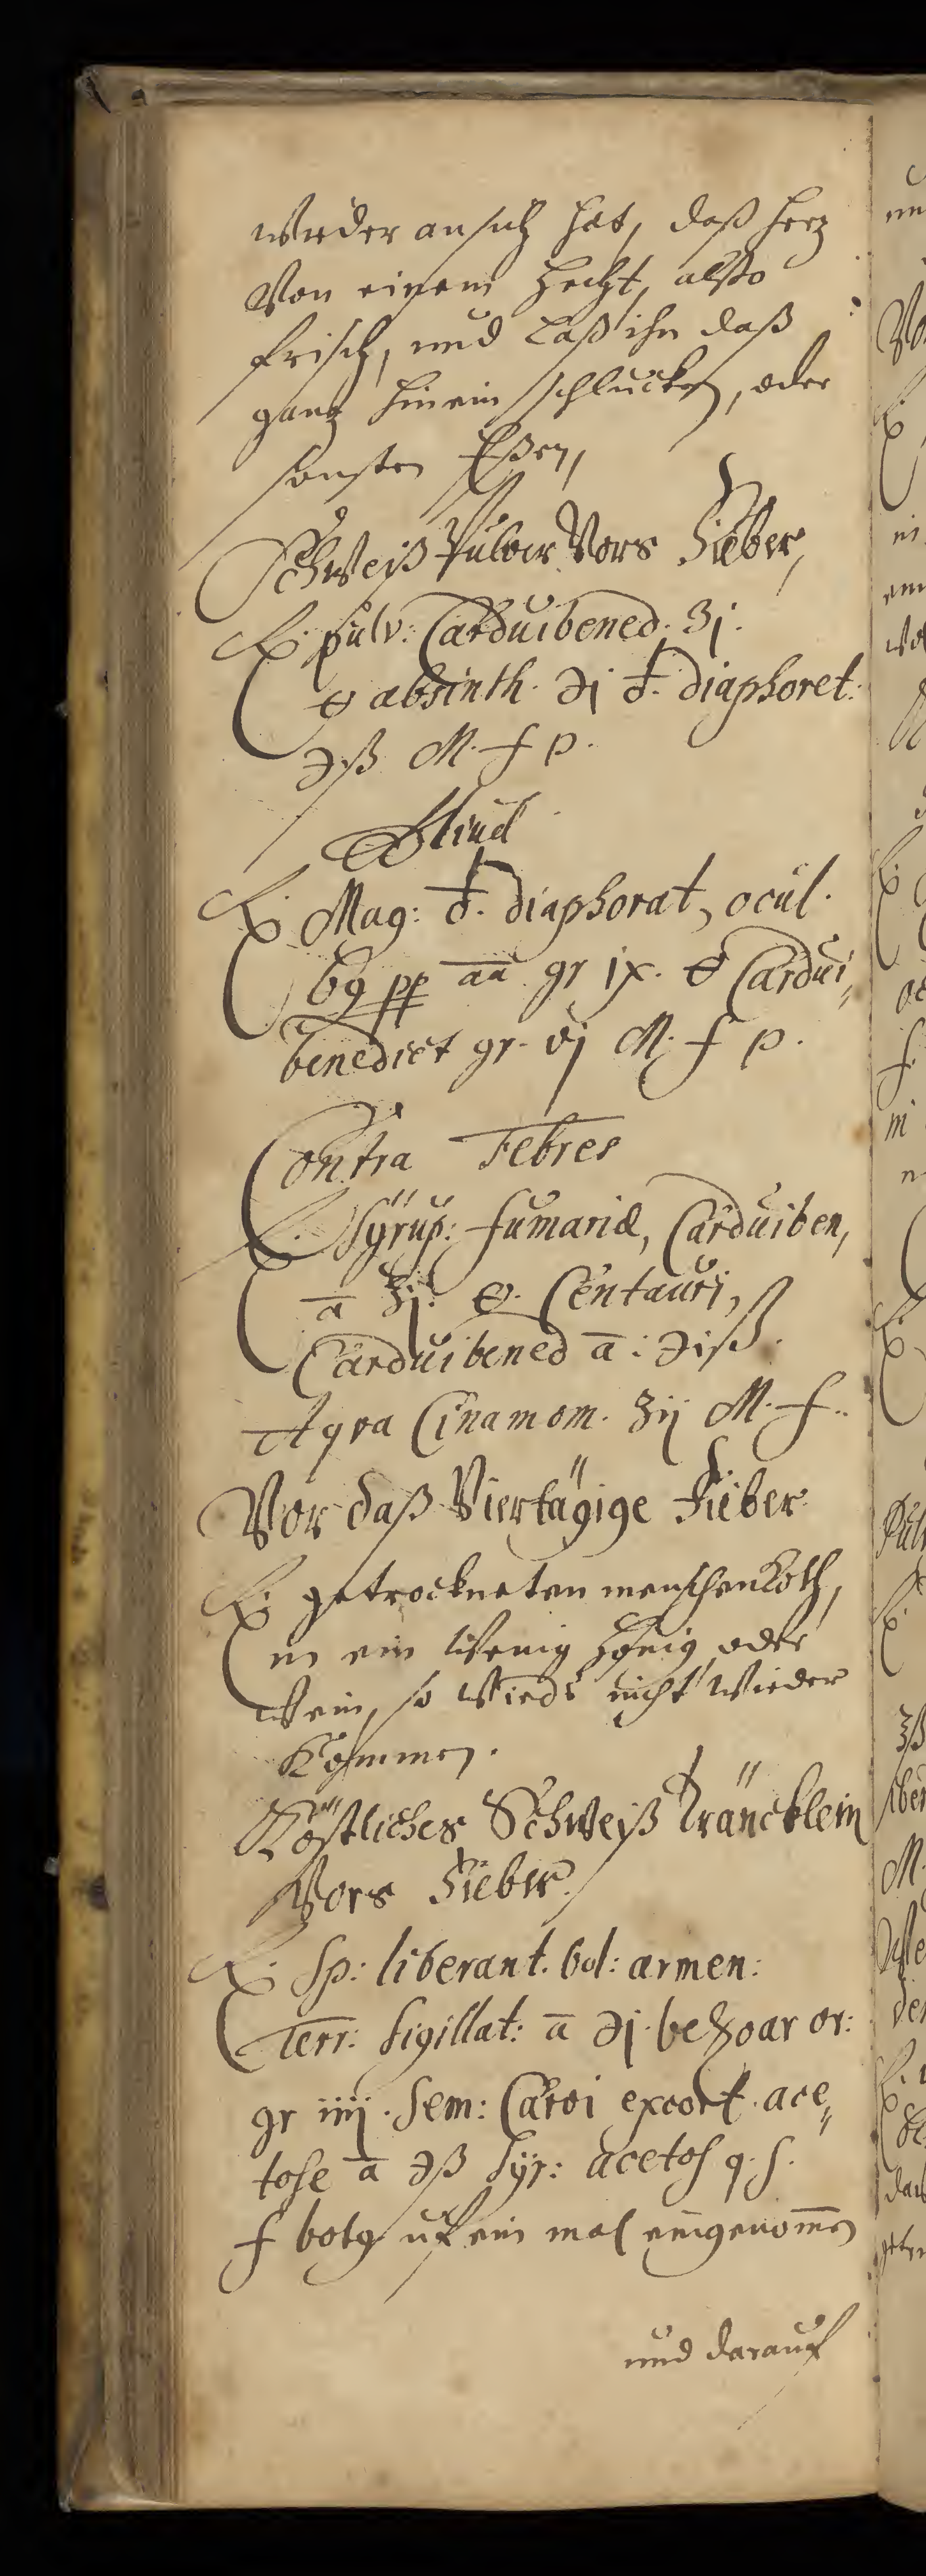 wieder an sich hat, daß herz
Von einem Hecht, alßo
frisch, und Laß ihn daß
gantz hinein schlucken, oder
sonsten Eßen,
Schweiß Pulver Vors Fieber,
℞. pulv: Carduibened. ʒj.
🜔 absinth. ℈j ♁. diaphoret:
℈ß M. f p.
Aliud
℞. Mag: ♁. diaphorat, ocul.
69 pp aa gr ix. 🜔 Cardui,,
benedict gr. vj M. f p.
Contra Febres
℞. Syrup: fumariæ, Carduiben,
a ʒj. 🜔. Centauri,
Carduibened a: ℈iß.
Aqva Cinamom. ʒij M. f..
Vor daß Viertägige Fieber
℞. getrockneten menschenKoth,
in ein Wenig Honig oder
Wein, so Wirds nicht Wieder
Kommen.
Köstliches Schweiß Träncklein
Vors Fieber.
℞. Sp: liberant. bol: armen:
Terr: sigillat: a ℈j. bezoar or:
gr iiij. Sem: Carvi excort. ace,,
tose a ℈ß Syr: acetos q. s.
f bolg uf ein mal eingenomen
und darauf